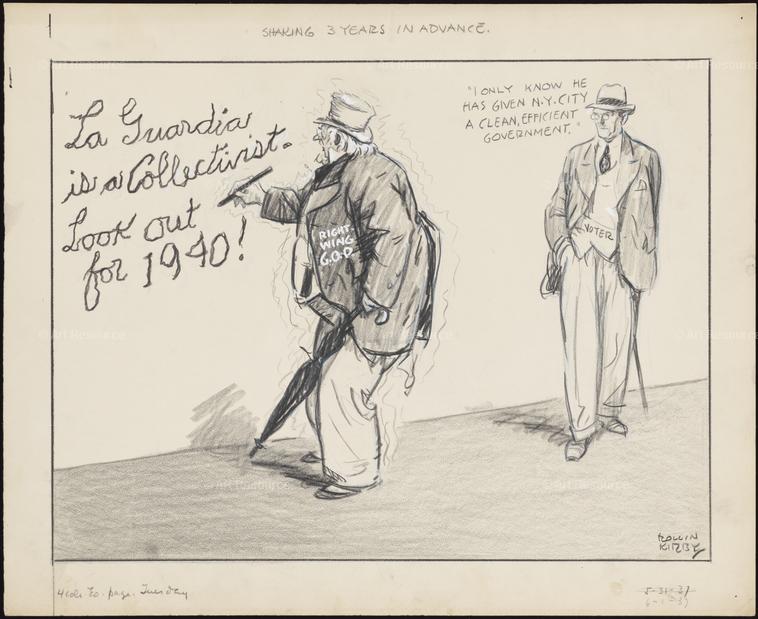 SHAKING 3 YEARS IN ADVANCE.
La Guardia
is a Collectivist.
Look out
for 1940!
"I ONLY KNOW HE
HAS GIVEN N.Y. CITY
A CLEAN, EFFICIENT
GOVERNMENT."
RIGHT
WING
G.O.P.
VOTER
ROLLIN
KIRBY
4 cols Ed. page. Tuesday
5-31-37
6-1-37
Art Resource